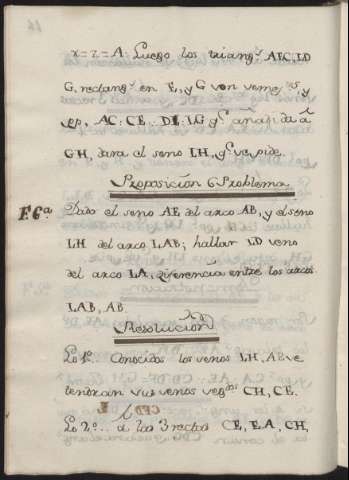 x=z=A. Luego los triangs. AEC, LD
G, rectangs. en E, y G son semejs., y
AC:CE::DL:LG qe. añadida á
GH, dara el seno LH, qe. se pide.
Proposición 6 Problema
F.6a. Dado el seno AE del arco AB, y el seno
LH del arco LAB; hallar LD seno
del arco LA, diferencia entre los arcos
LAB, AB.
Resolución
Lo 1o. Conocidos los senos LH, AE se
tendran sus senos segdos. CH, CE.
Lo 2o. .. a las 3 rectas CE, EA, CH,